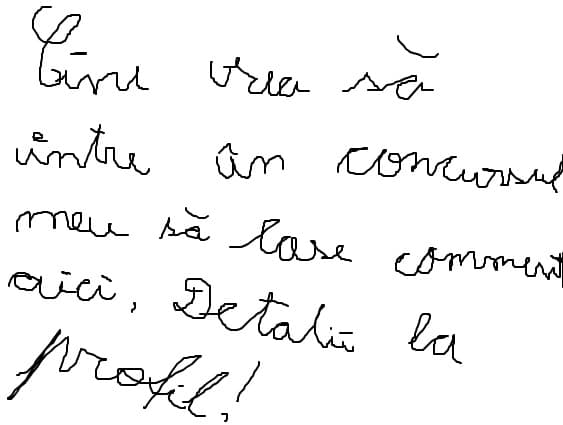 Cine vrea să
intre în concursul
meu să lase comment
aici, Detalii la
profil!